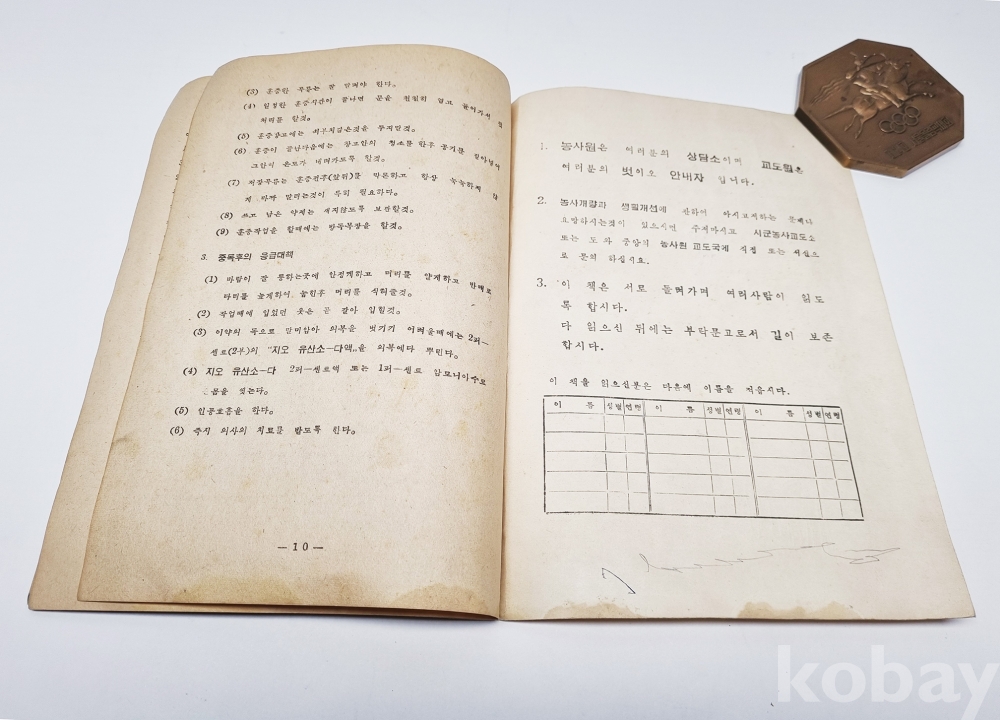 (3) 훈증한 곡물는 잘 말려야 한다。
(4) 일정한 훈증시간이 끝나면 문을 천천히 열고 들어가서 뒷
처리를 할것。
(5) 훈증창고에는
(6) 훈증이 끝난다음에는 창고안의 청소를 한후 공기를 갈아넣어
그안의 온도가 내려가도록 할것。
(7) 저장곡물은 훈증전후 막론하고 항상
게 바짝 말리는것이 특히 필요하다。
(8) 쓰고 남은 약제는 새지않도록 보관할것。
(9) 훈증작업을 할때에는 방독복장을 할것。
3. 중독후의 응급대책
(1) 바람이 잘 통하는곳에 안정케하고 머리를 얕게하고 반대로
다리를 높게하여 눕힌후 머리를 식히줄것。
(2) 작업때에 입었던 옷은 곧 갈아 입힐것。
(3) 이약의 독으로 말미암아 의복을 벗기기 어려울때에는 2퍼—
센트(2부)의 "지오 유산소—다액"을 의복에다 뿌린다。
(4) 지오 유산소—다 2퍼—센트액 또는 1퍼—센트 암모니아수로
몸을 씻는다。
(5) 인공호흡을 한다。
(6) 즉지 의사의 치료를 받도록 한다。
— 10 —
1. 농사원은 여러분의 상담소이며 교도원은
여러분의 벗이오 안내자 입니다.
2. 농사개량과 생활개선에 관하여 아시고저하는 문제나
요망하시는것이 있으시면 주저마시고 시군농사교도소
또는 도 와 중앙의 농사원 교도국에 직접 또는 서신으
로 문의 하십시요.
3. 이 책은 서로 돌려가며 여러사람이 읽도
록 합시다.
다 읽으신 뒤에는 부락문고로서 길이 보존
합시다.
이 책을 읽으실분은 다음에 이름을 적읍시다.
이 름 성별 연령 이 름 성별 연령 이 름 성별 연령
kobay